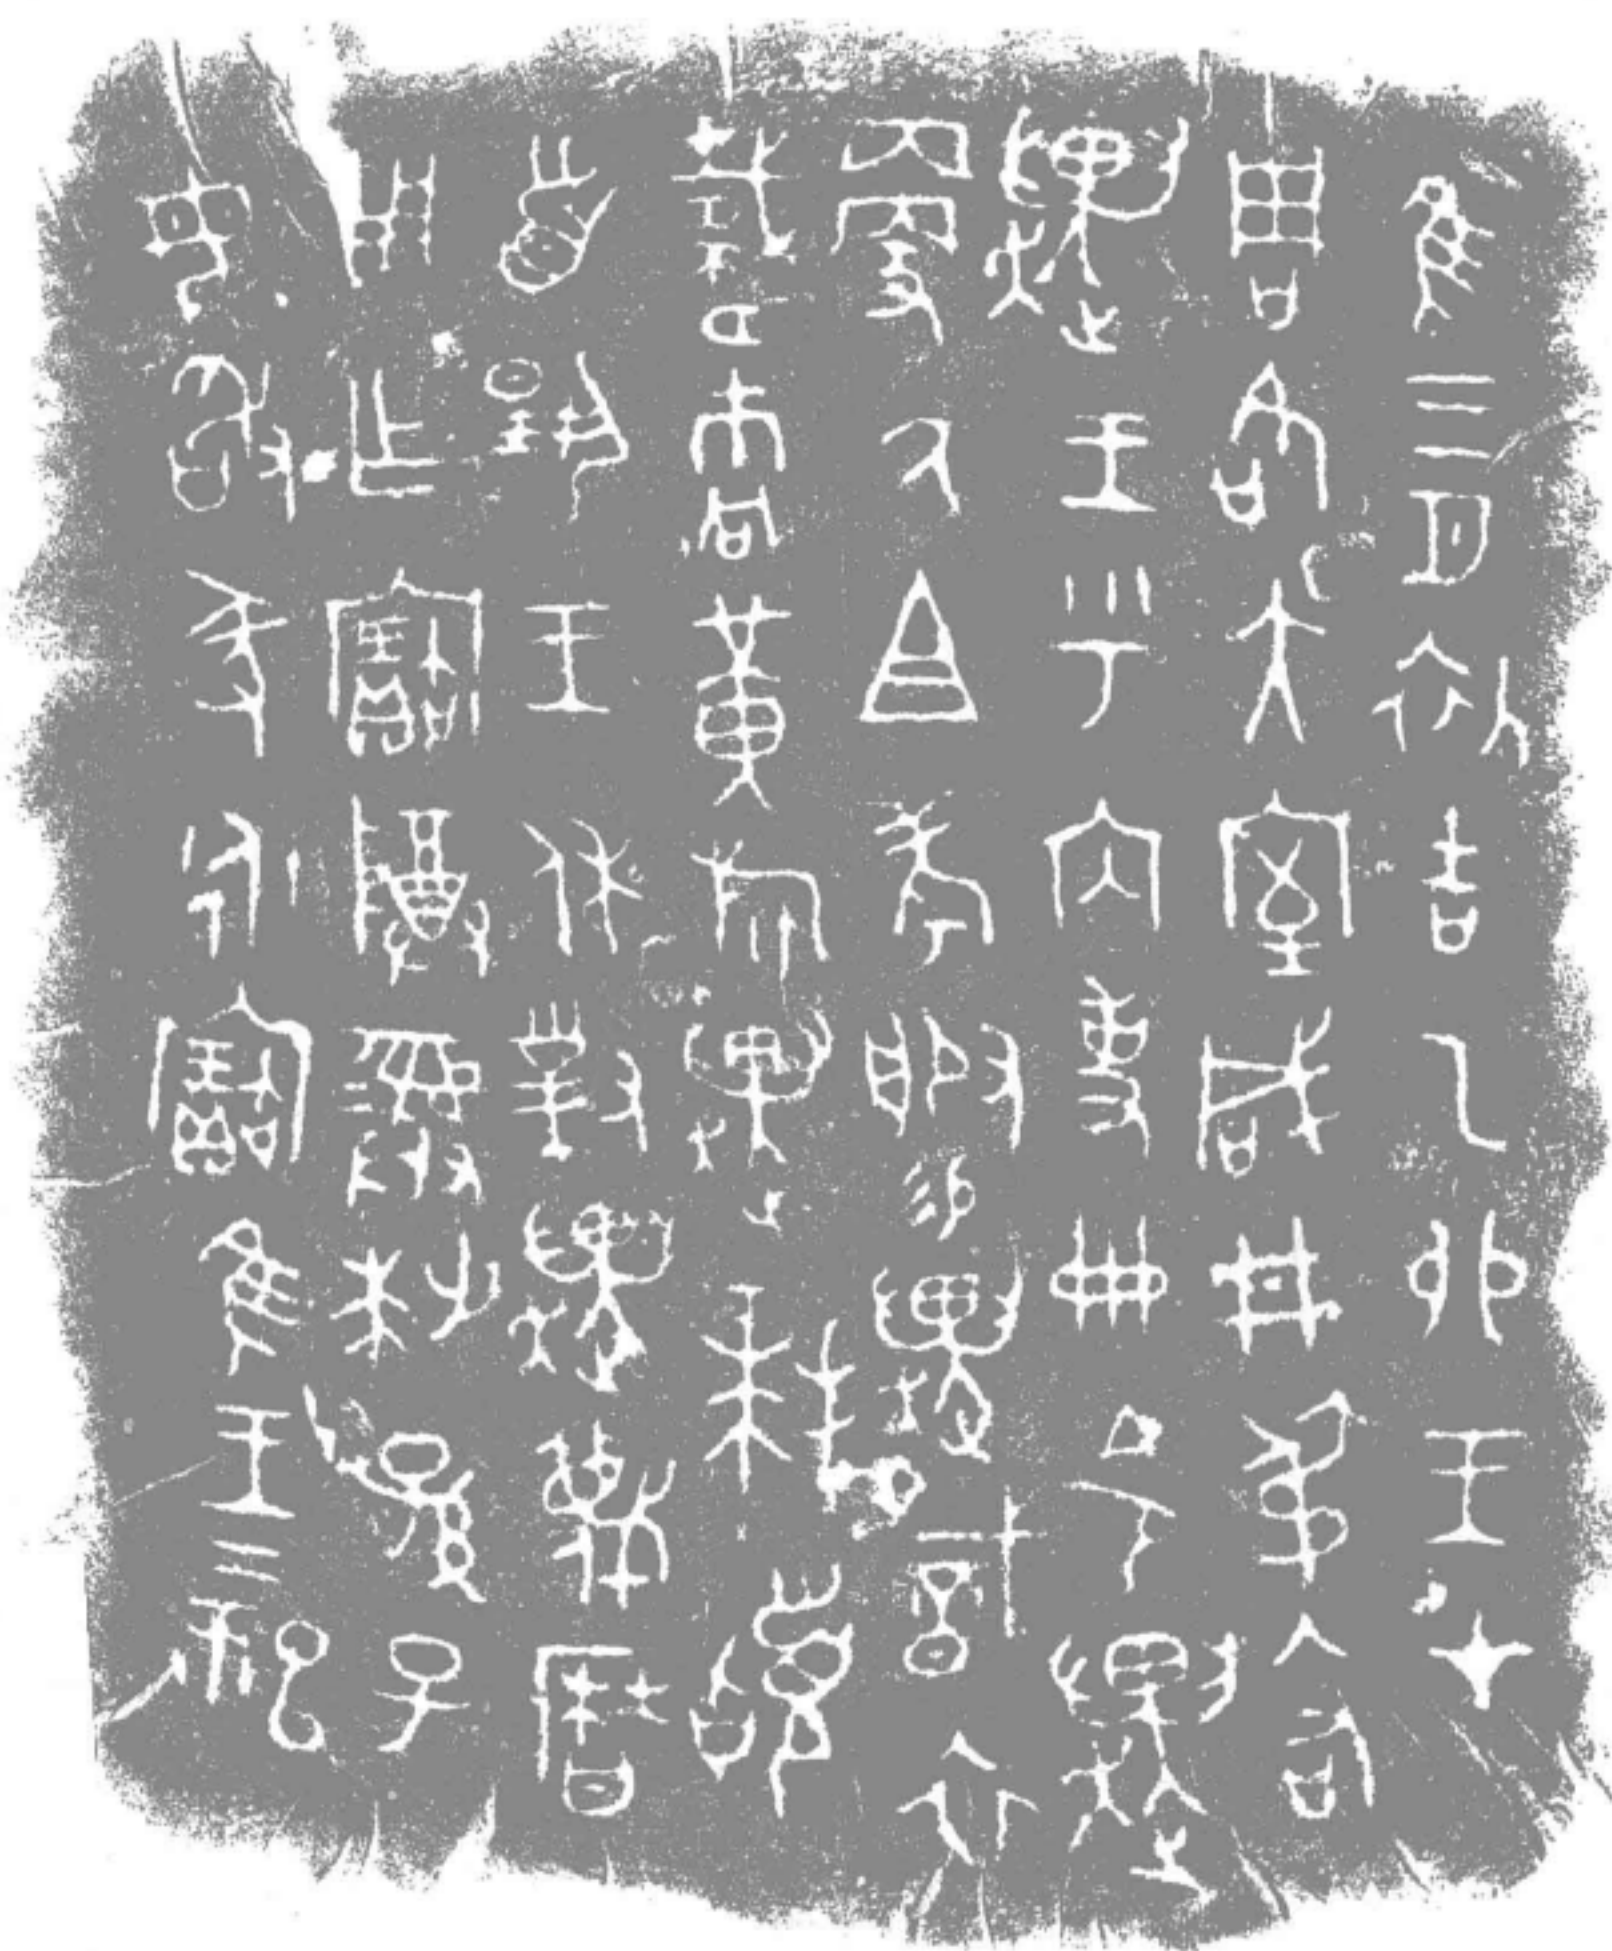 隹三月初吉乙卯王才
周各大室咸井弔入右
趩王乎內史冊令趩
更氒且考服易趩戠衣
載巿冋黃旂趩拜𩒨
首揚王休對趩蔑曆
用乍寶尊彝枼孫子
毋敢彖永寶隹王二祀